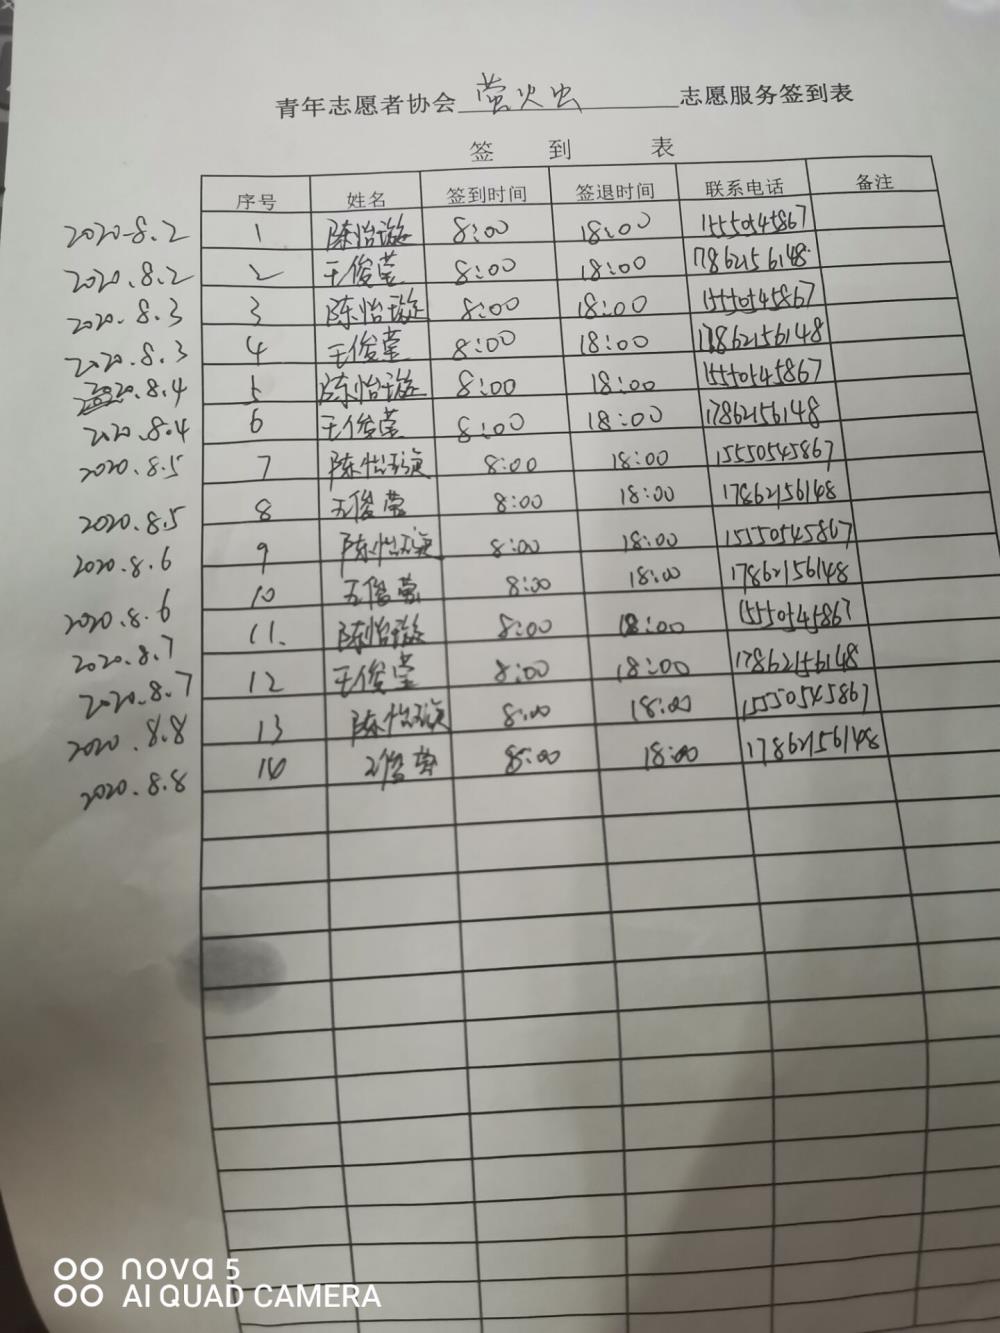 青年志愿者协会 萤火虫 志愿服务签到表
签 到 表
序号 姓名 签到时间 签退时间 联系电话 备注
2020.8.2 1 陈怡璇 8:00 18:00 15550545867
2020.8.2 2 王俊莹 8:00 18:00 17862156148
2020.8.3 3 陈怡璇 8:00 18:00 15550545867
2020.8.3 4 王俊莹 8:00 18:00 17862156148
2020.8.4 5 陈怡璇 8:00 18:00 15550545867
2020.8.4 6 王俊莹 8:00 18:00 17862156148
2020.8.5 7 陈怡璇 8:00 18:00 15550545867
2020.8.5 8 王俊莹 8:00 18:00 17862156148
2020.8.6 9 陈怡璇 8:00 18:00 15550545867
2020.8.6 10 王俊莹 8:00 18:00 17862156148
2020.8.7 11. 陈怡璇 8:00 18:00 15550545867
2020.8.7 12 王俊莹 8:00 18:00 17862156148
2020.8.8 13 陈怡璇 8:00 18:00 15550545867
2020.8.8 14 王俊莹 8:00 18:00 17862156148
nova 5
AI QUAD CAMERA